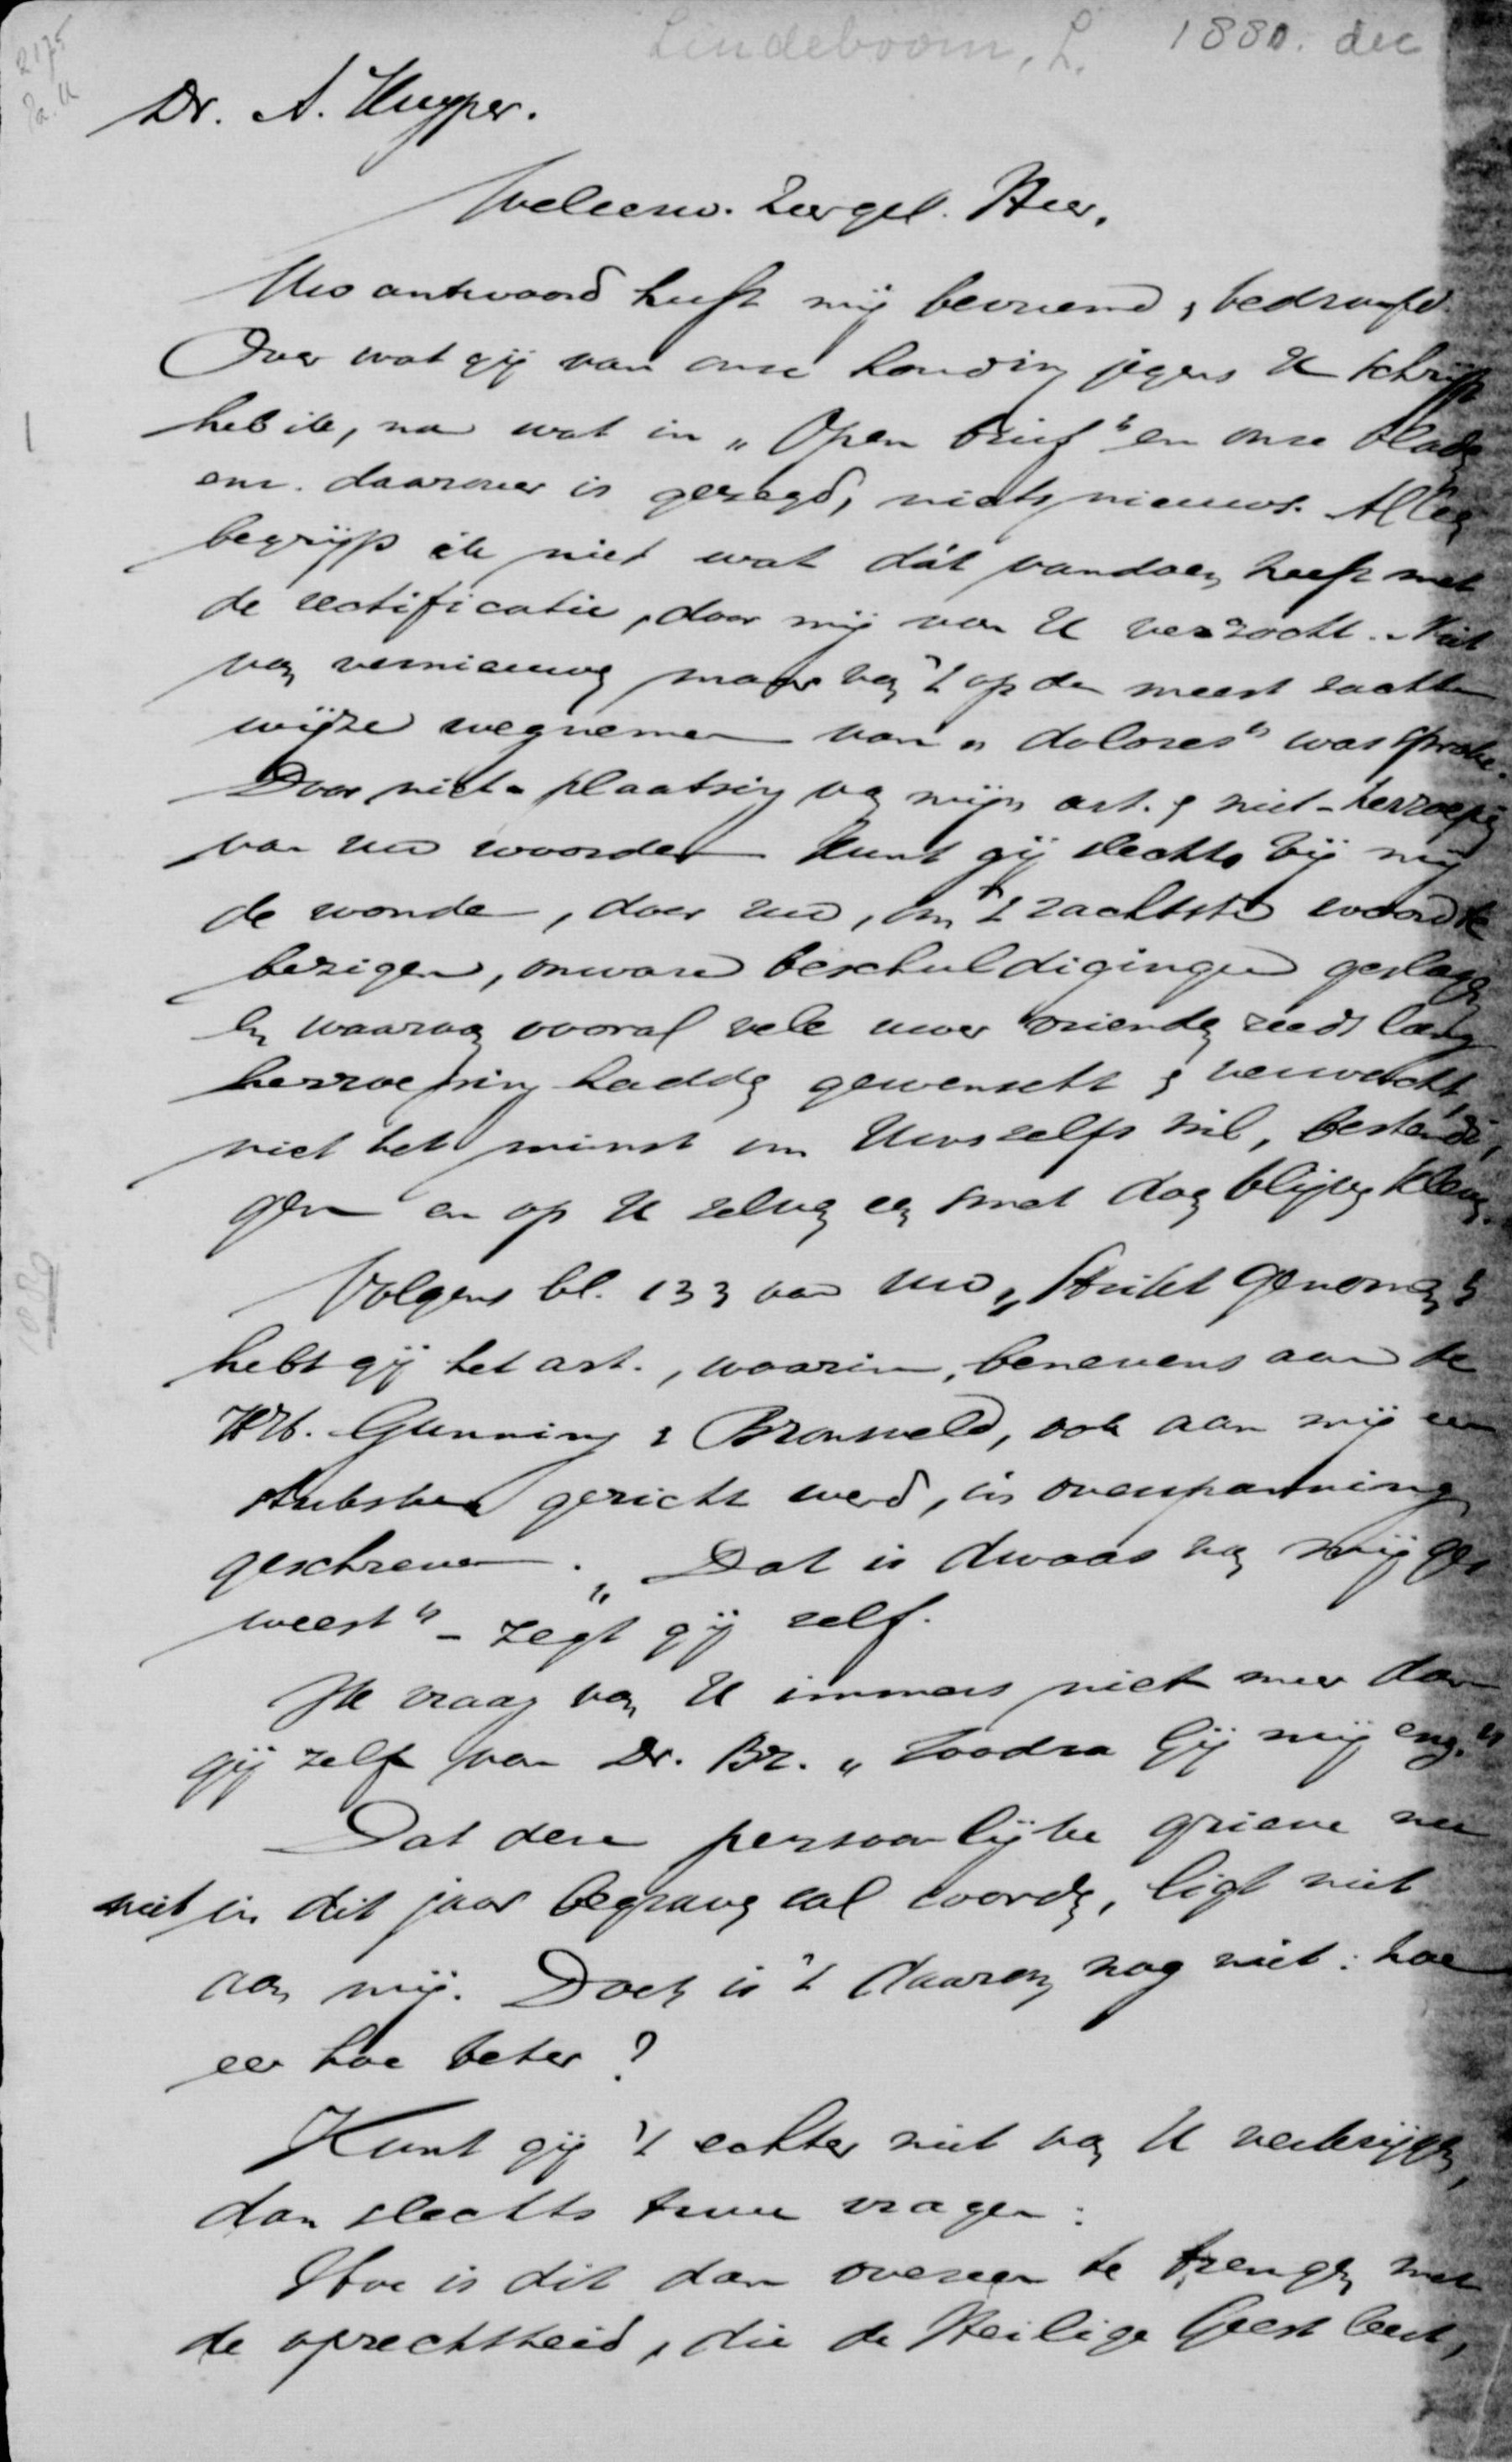 Lindeboom, L. 1880. dec
2175
Dr. A. Kuyper.
Weleerw. Zeergel. Heer,
Uw antwoord heeft mij bevreemd & bedroefd.
Over wat gij van onze houding jegens U schrijft
heb ik, na wat in „Open brief" en onze blade
enz. daarover is gezegd, niets nieuws. Alleen
begrijp ik niet wat dát vandoen heeft met
de rectificatie, door mij van U verzocht. Niet
van vernieuwen maar van 't op de meest zachte
wijze wegnemen van „dolores" was sprake.
Door niet-plaatsing van mijn art. & niet-herroeping
van uw woorden kunt gij slechts bij mij
de wonde, door uw, om 't zachtste woord te
bezigen, onware beschuldigingen geslagen
en waarvan vooral vele uwer vrienden reeds lang
herroeping hadden gewenscht & verwacht,
niet het minst om Uws zelfs wil, bestendi,
gen en op U zelven een smet doen blijven kleven.
Volgens bl. 133 van uw „Strikt Genomen"
hebt gij het art., waarin, benevens aan de
HH. Gunning & Bronsveld, ook aan mij een
gericht werd, in overspanning
geschreven. „Dat is dwaas van mij ge
weest" - zegt gij zelf.
Ik vraag van U immers niet meer dan
gij zelf van Dr. Br. „Zoodra Gij mij enz."
Dat deze persoonlijke grieve nu
niet in dit jaar begraven zal worden, ligt niet
aan mij. Doch is 't daarom nog niet: hoe
eer hoe beter?
Kunt gij 't echter niet van U verkrijgen,
dan slechts twee vragen:
Hoe is dit dan overeen te brengen met
de oprechtheid, die de Heilige Geest leert,